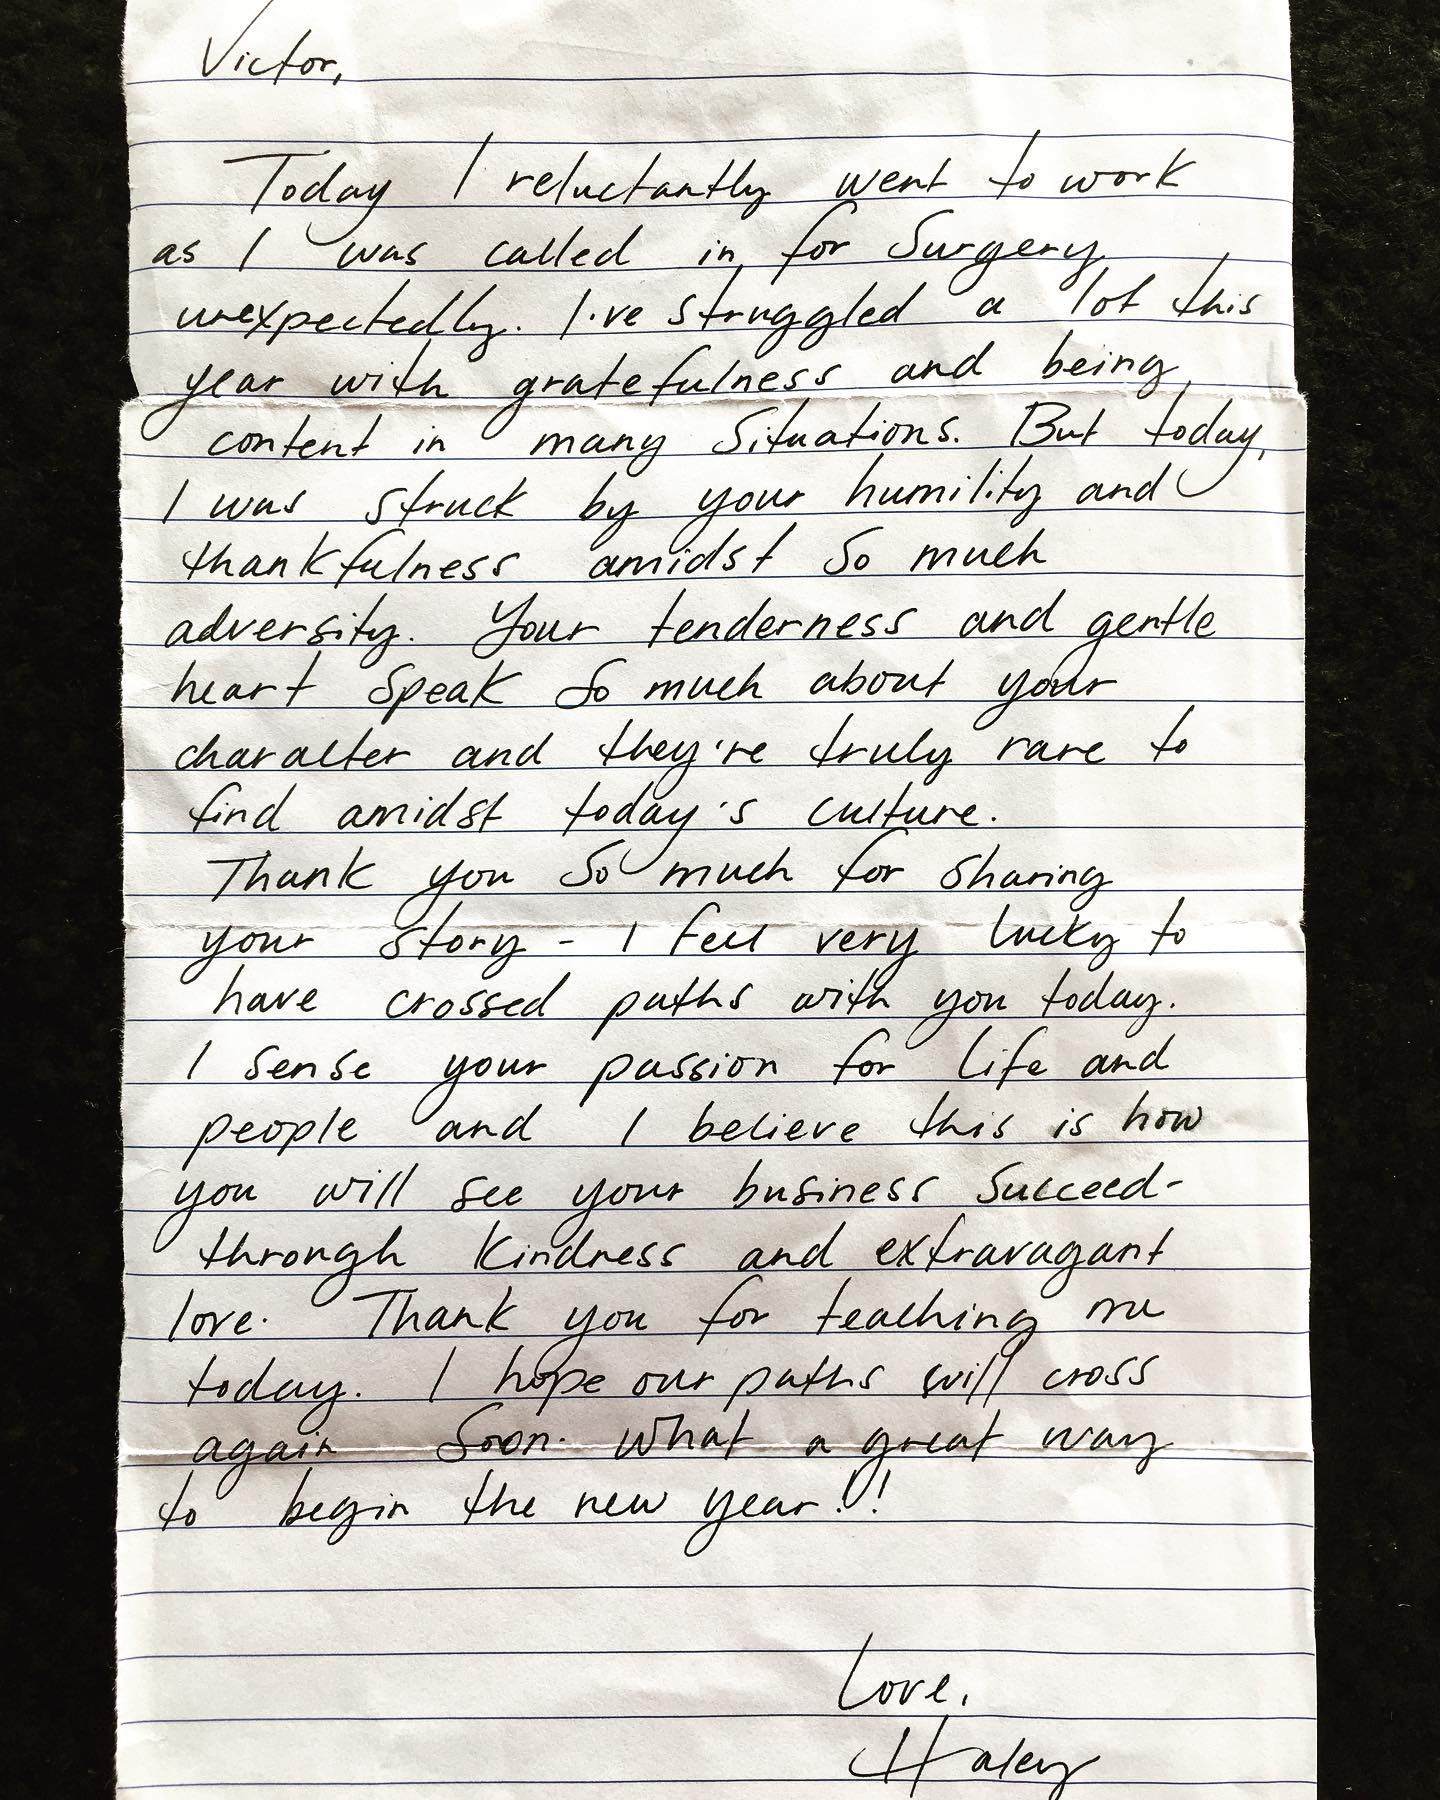 Victor,
Today I reluctantly went to work
as I was called in for Surgery
unexpectedly. I've struggled a lot this
year with gratefulness and being
content in many Situations. But today,
I was struck by your humility and
thankfulness amidst So much
adversity. Your tenderness and gentle
heart Speak So much about your
character and they're truly rare to
find amidst today's culture.
Thank you So much for Sharing
your Story - I feel very lucky to
have crossed paths with you today.
I sense your passion for life and
people and I believe this is how
you will see your business Succeed-
through Kindness and extravagant
love. Thank you for teaching me
today. I hope our paths will cross
again Soon. What a great way
to begin the new year!!
Love,
Haley